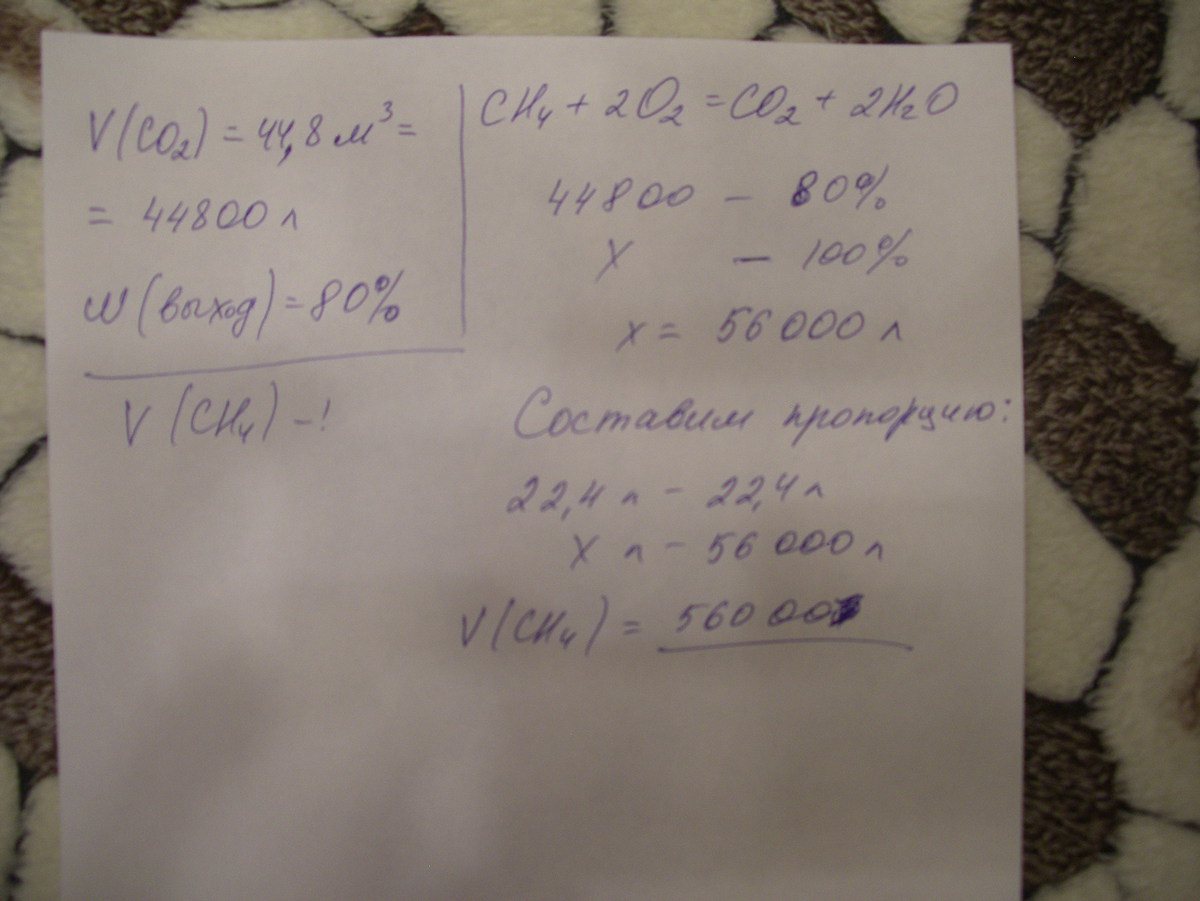 V(CO₂) = 44,8 м³ =
= 44800 л
W (выход) = 80%
V (CH₄) - !
CH₄ + 2O₂ = CO₂ + 2H₂O
44800 – 80%
X – 100%
x = 56000 л
Составим пропорцию:
22,4 л – 22,4 л
X л – 56000 л
V(CH₄) = 56000